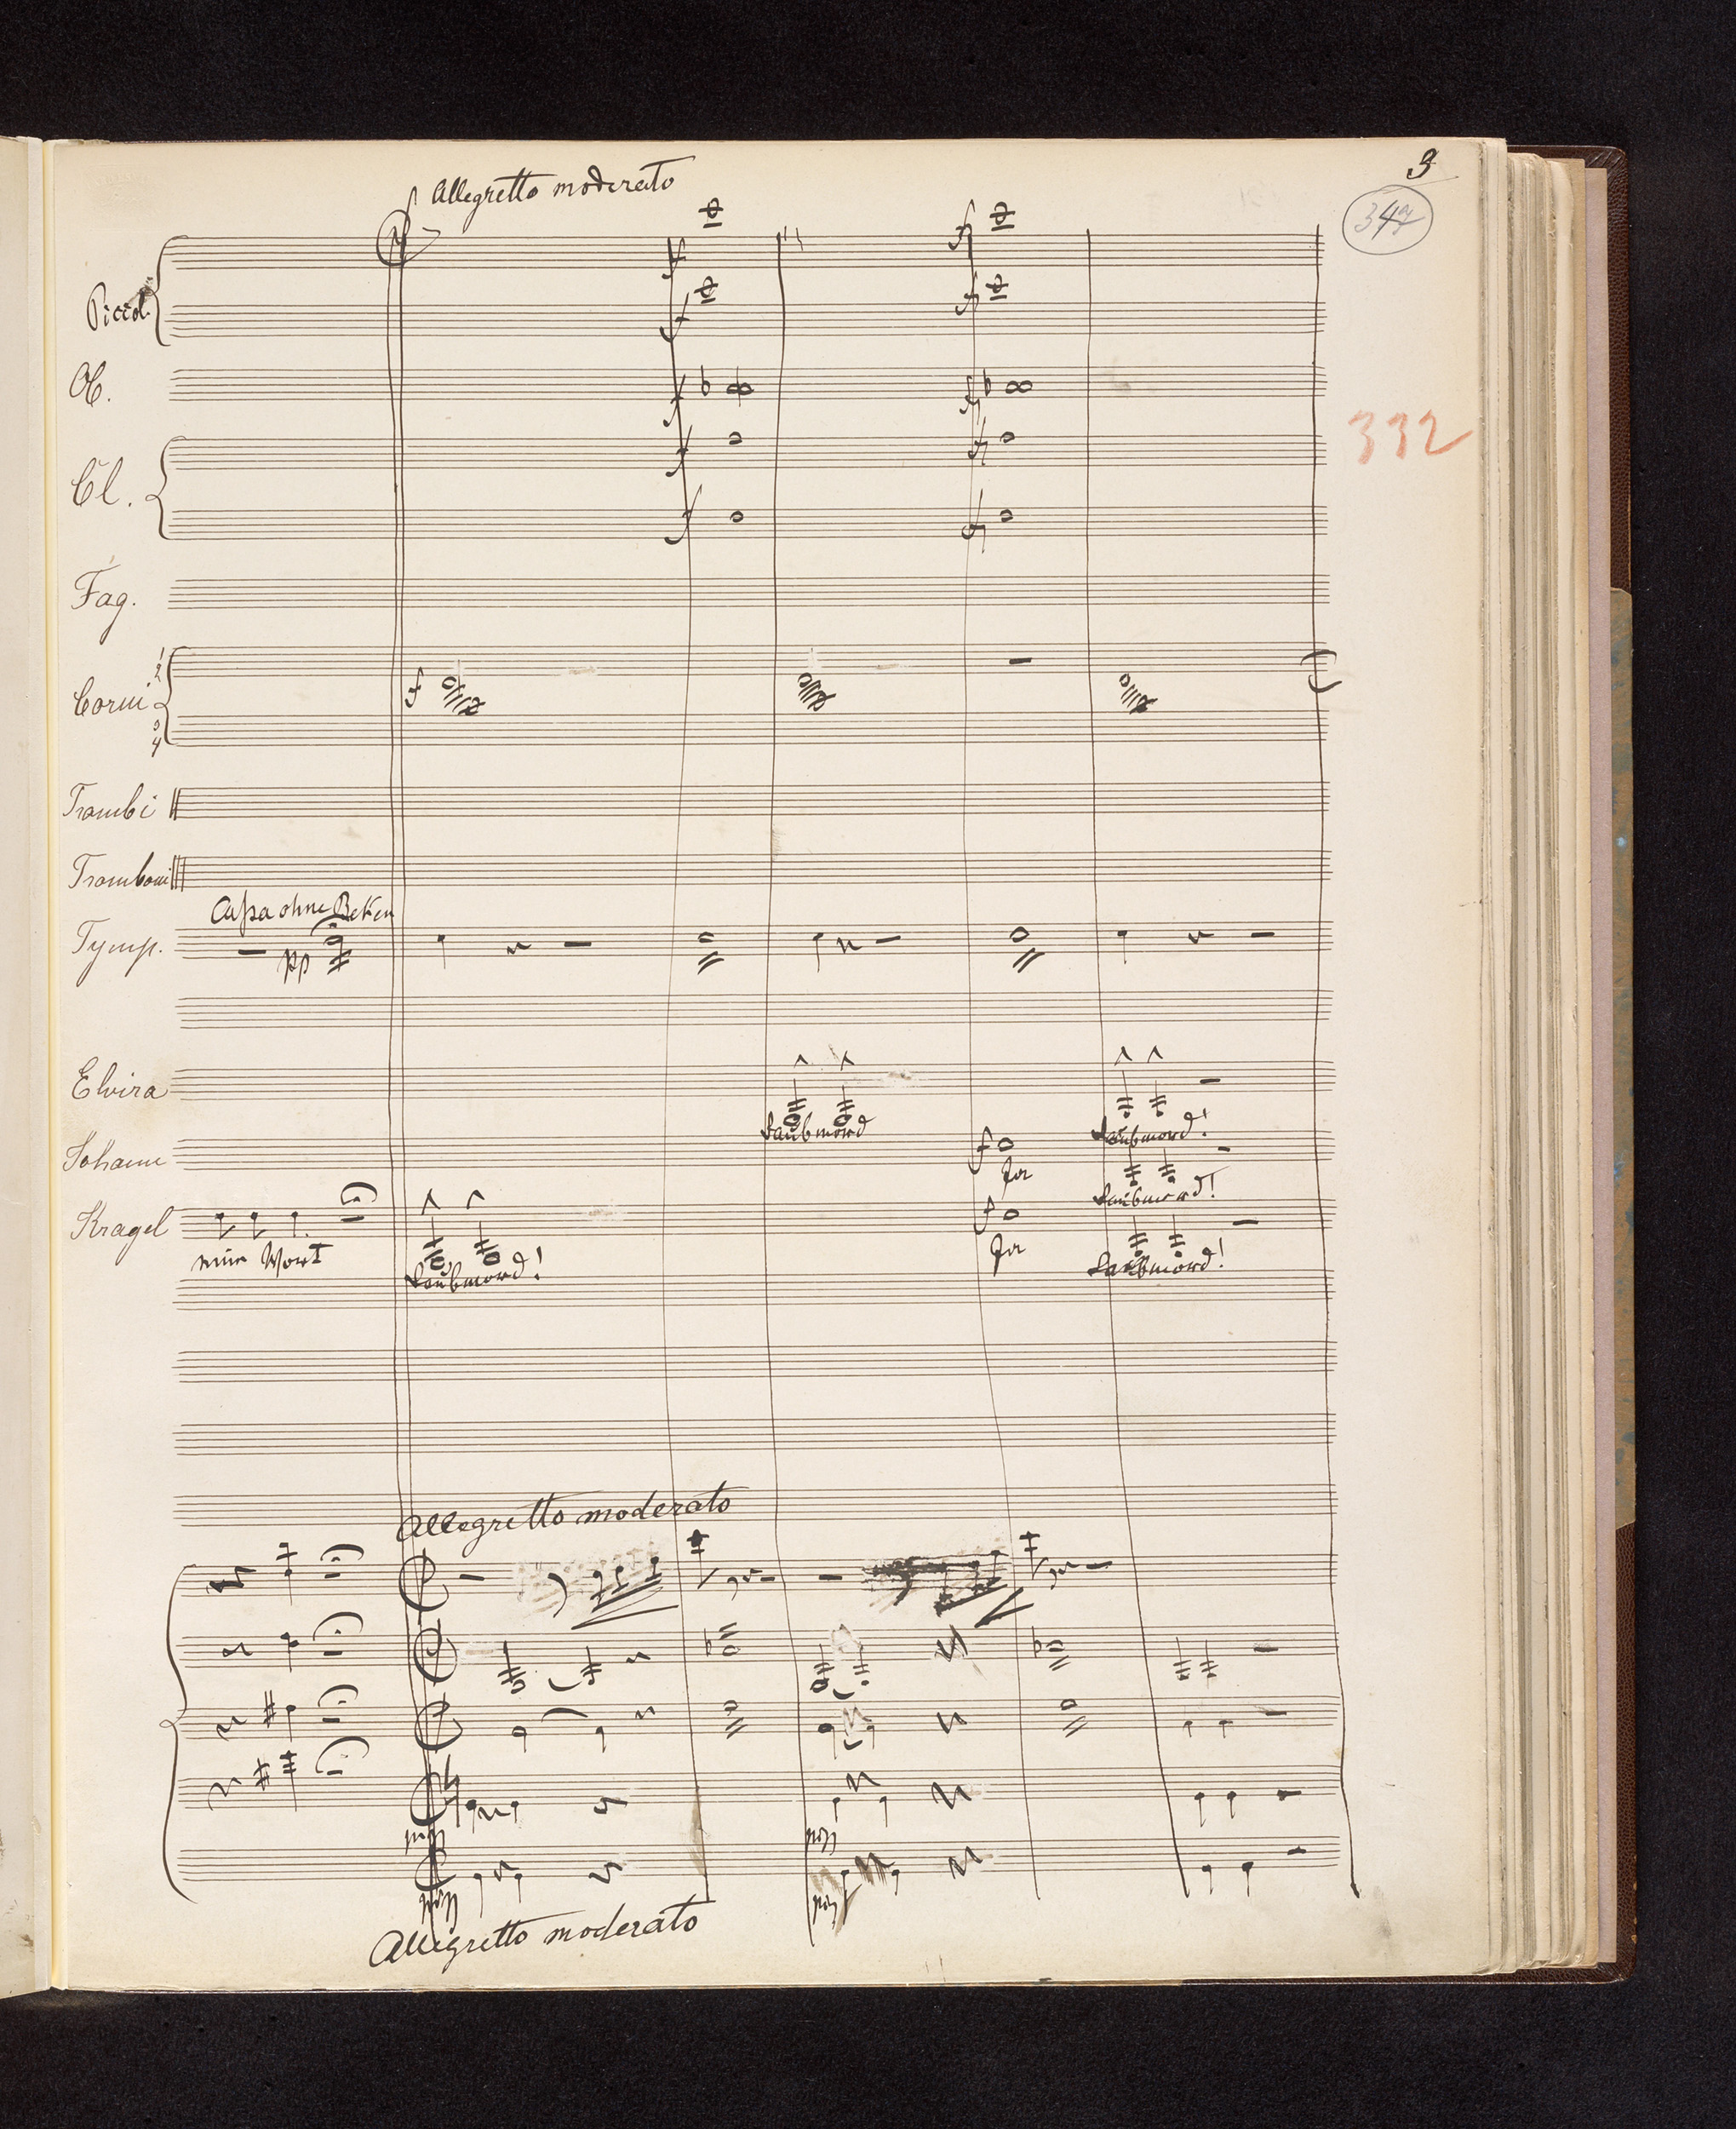 3
Allegretto moderato
347
Piccol.
Ob.
332
Cl.
Fag.
1
2
Corni
3
4
Trombi
Tromboni
Cassa ohne Beken
Tymp.
pp
Elvira
Raubmord
Raubmord!
Johann
f
Ja
Raubmord!
Kragel
f
nur Wort
Raubmord!
Ja
Raubmord!
Allegretto moderato
Allegretto moderato